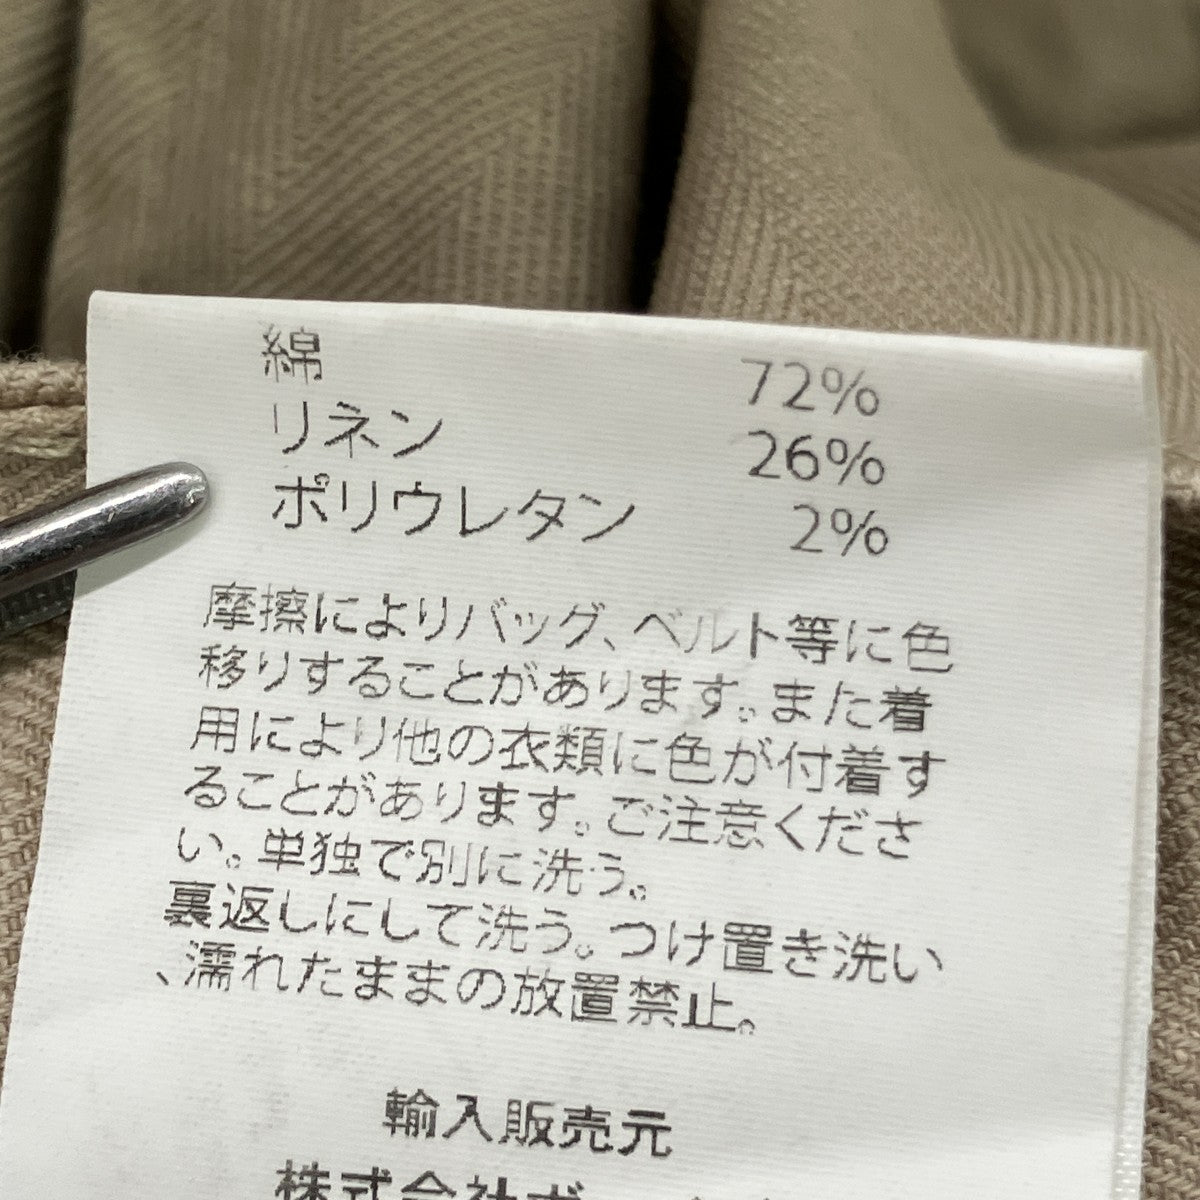 綿 72%
リネン 26%
ポリウレタン 2%
摩擦によりバッグ、ベルト等に色
移りすることがあります。また着
用により他の衣類に色が付着す
ることがあります。ご注意くださ
い。単独で別に洗う。
裏返しにして洗う。つけ置き洗い
、濡れたままの放置禁止。
輸入販売元
株式会社ボ